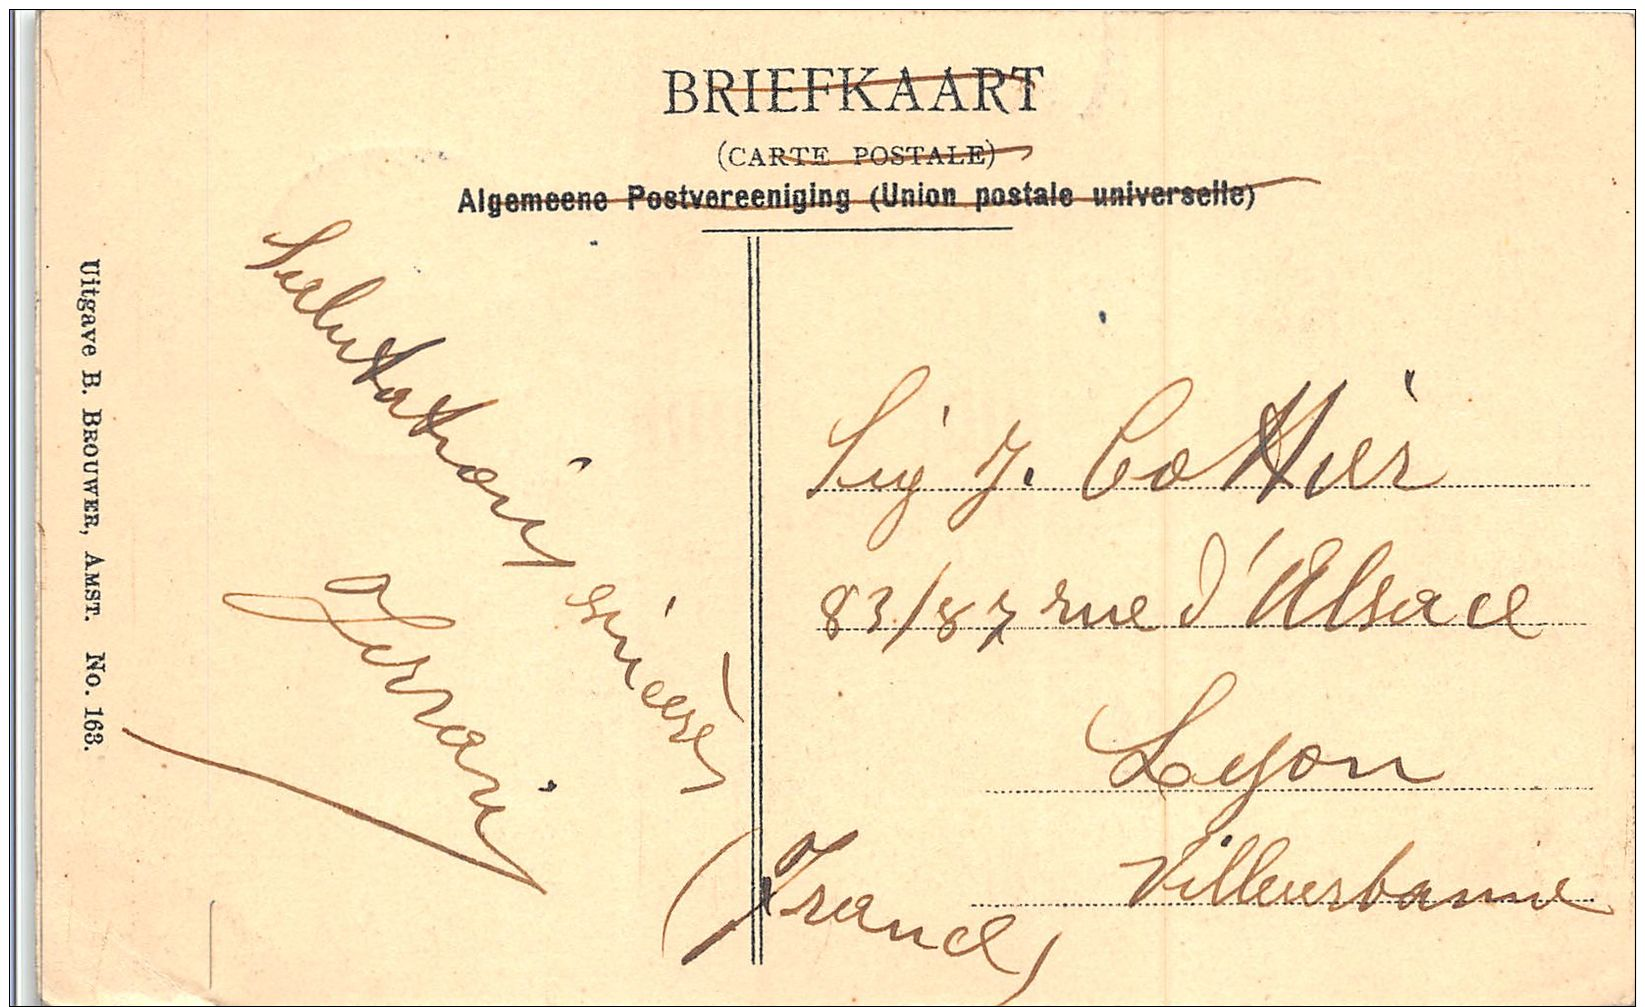 BRIEFKAART
(CARTE POSTALE)
Algemeene Postvereeniging (Union postale universelle)
Uitgave B. BROUWER, AMST. No. 163.
Salutations sincères
Ferrari
Sig J. Cottier
83/87 rue d'Alsace
Lyon
Villeurbanne
(France)